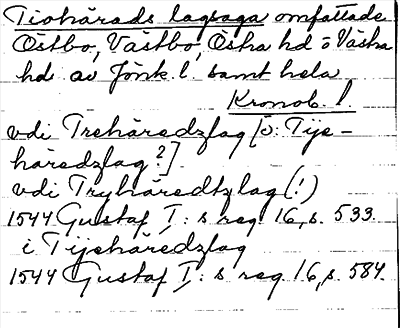 Tiohärads lagsaga omfattade
Östbo, Västbo, Östra hd o Västra
hd av Jönk. l. samt hela
Kronob. l.
vdi Trehäredzlag [ɔ: Tije-
häredzlag?].
vdi Tryhäredtzlag (!)
1544 Gustaf I:s reg 16, s. 533.
i Tijehäredzlag
1544 Gustaf I:s reg 16, s. 584.